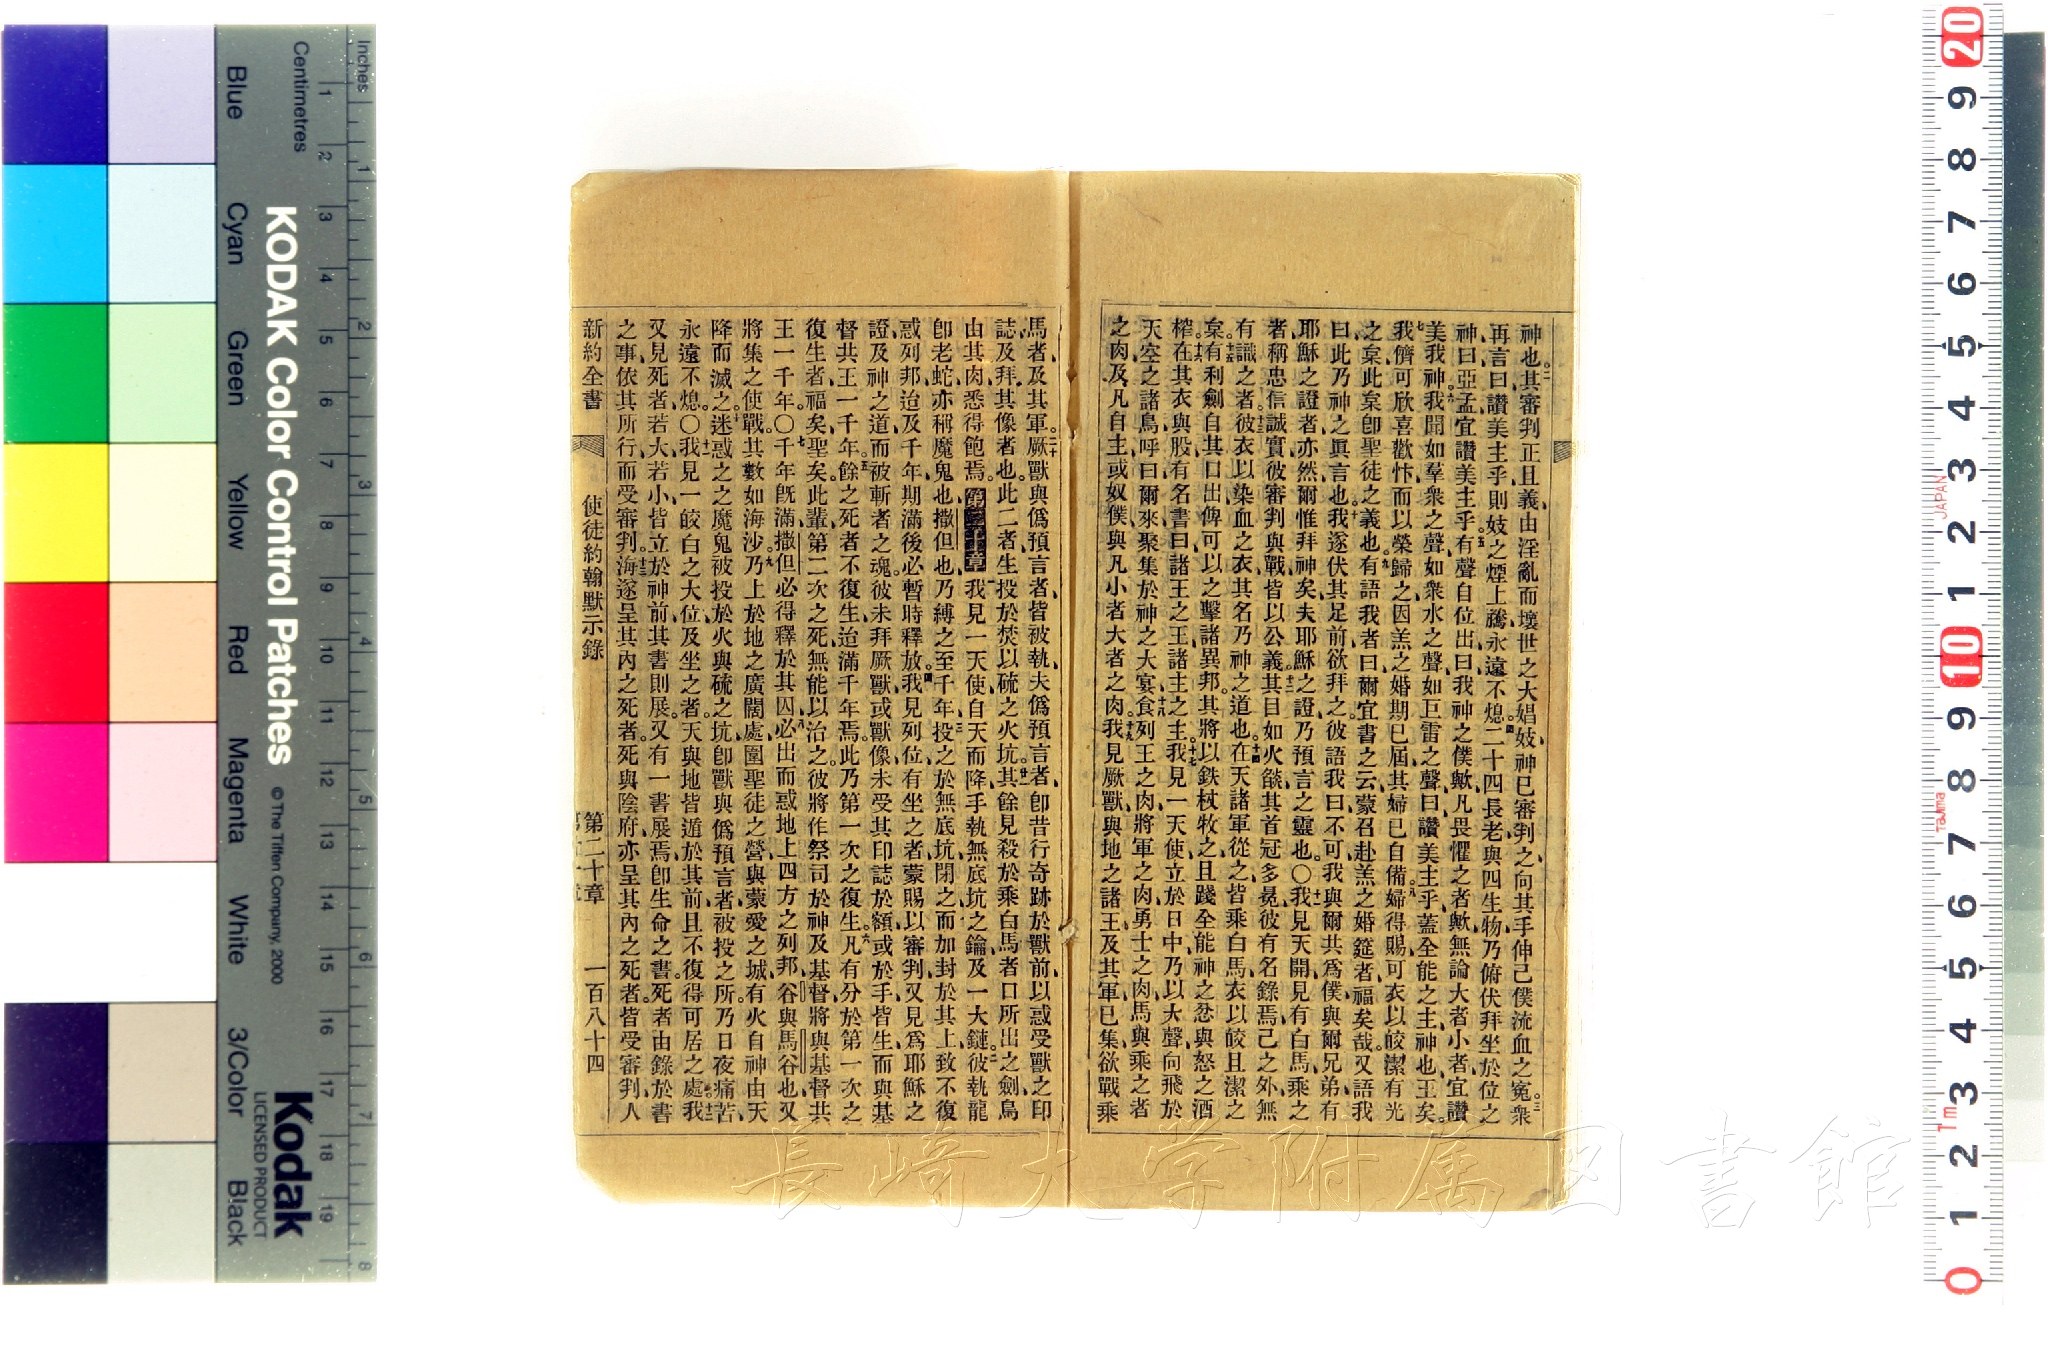 神也其審判正且義由淫亂而壞世之大娼妓神已審判之向其手伸己僕流血之寃衆
再言曰讚美主乎則妓之煙上騰永遠不熄二十四長老與四生物乃俯伏拜坐於位之
神曰亞孟宜讚美主乎有聲自位出曰我神之僕歟凡畏懼之者歟無論大者小者宜讚
美我神我聞如羣衆之聲如衆水之聲如巨雷之聲曰讚美主乎蓋全能之主神也王矣
我儕可欣喜歡忭而以榮歸之因羔之婚期已屆其婦已自備婦得賜可衣以皎潔有光
之枲此枲卽聖徒之義也有語我者曰爾宜書之云蒙召赴羔之婚筵者福矣哉又語我
曰此乃神之眞言也我遂伏其足前欲拜之彼語我曰不可我與爾共爲僕與爾兄弟有
耶穌之證者亦然爾惟拜神矣夫耶穌之證乃預言之靈也〇我見天開見有白馬乘之
者稱忠信誠實彼審判與戰皆以公義其目如火燄其首冠多冕彼有名錄焉己之外無
有識之者彼衣以染血之衣其名乃神之道也在天諸軍從之皆乘白馬衣以皎且潔之
枲有利劍自其口出俾可以之擊諸異邦其將以鉄杖牧之且踐全能神之忿與怒之酒
榨在其衣與股有名書曰諸王之王諸主之主我見一天使立於日中乃以大聲向飛於
天空之諸鳥呼曰爾來聚集於神之大宴食列王之肉將軍之肉勇士之肉馬與乘之者
之肉及凡自主或奴僕與凡小者大者之肉我見厥獸與地之諸王及其軍已集欲戰乘
馬者及其軍厥獸與僞預言者皆被執夫僞預言者卽昔行奇跡於獸前以惑受獸之印
誌及拜其像者也此二者生投於焚以硫之火坑其餘見殺於乘白馬者口所出之劍鳥
由其肉悉得飽焉第二十章我見一天使自天而降手執無底坑之鑰及一大鏈彼執龍
卽老蛇亦稱魔鬼也撒但也乃縛之至千年投之於無底坑閉之而加封於其上致不復
惑列邦迨及千年期滿後必暫時釋放我見列位有坐之者蒙賜以審判又見爲耶穌之
證及神之道而被斬者之魂彼未拜厥獸或獸像未受其印誌於額或於手皆生而與基
督共王一千年餘之死者不復生迨滿千年焉此乃第一次之復生凡有分於第一次之
復生者福矣聖矣此輩第二次之死無能以治之彼將作祭司於神及基督將與基督共
王一千年〇千年旣滿撒但必得釋於其囚必出而惑地上四方之列邦谷與馬谷也又
將集之使戰其數如海沙乃上於地之廣闊處圍聖徒之營與蒙愛之城有火自神由天
降而滅之迷惑之之魔鬼被投於火與硫之坑卽獸與僞預言者被投之所乃日夜痛苦
永遠不熄〇我見一皎白之大位及坐之者天與地皆遁於其前且不復得可居之處我
又見死者若大若小皆立於神前其書則展又有一書展焉卽生命之書死者由錄於書
之事依其所行而受審判海遂呈其內之死者死與陰府亦呈其內之死者皆受審判人
新約全書 使徒約翰默示錄 第二十章 一百八十四
長崎大学附属図書館
Inches
Centimetres
KODAK Color Control Patches © The Tiffen Company, 2000
Kodak
LICENSED PRODUCT
Blue Cyan Green Yellow Red Magenta White 3/Color Black
1 2 3 4 5 6 7 8 9 10 11 12 13 14 15 16 17 18 19
1 2 3 4 5 6 7 8
20 9 8 7 6 5 4 3 2 1 10 9 8 7 6 5 4 3 2 1 0
JAPAN
Tajima
1m